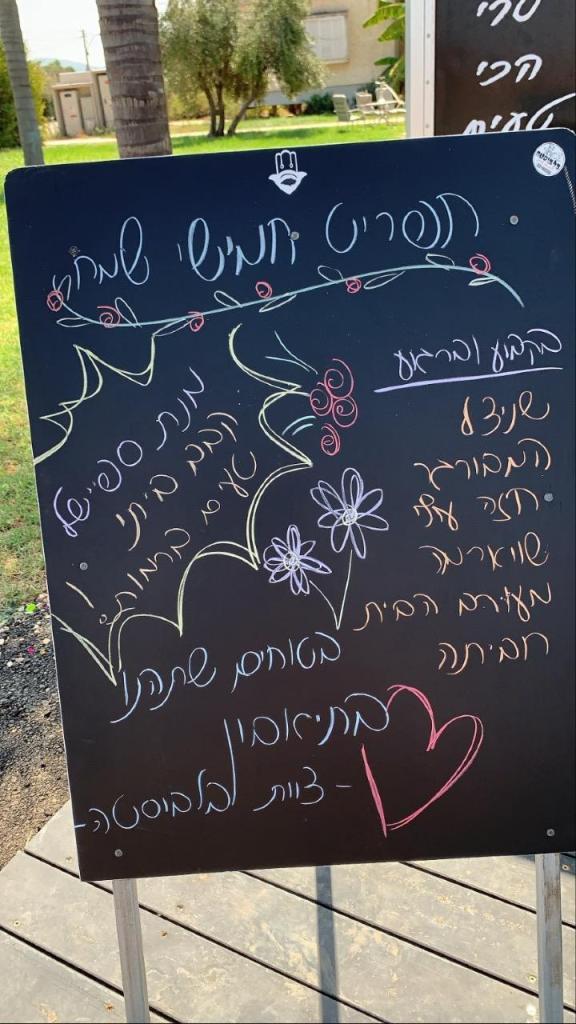 טרי
הכי
טעים
תפריט חמישי שמח
בקבוע וברגע
שניצל
המבורגר
חזה עוף
שווארמה
מעורב הבית
חביתה
מנת ספיישל
קבב ביתי
טעים ברמות!
בטוחים שתהנו
בתיאבון
- צוות בלביסטה -